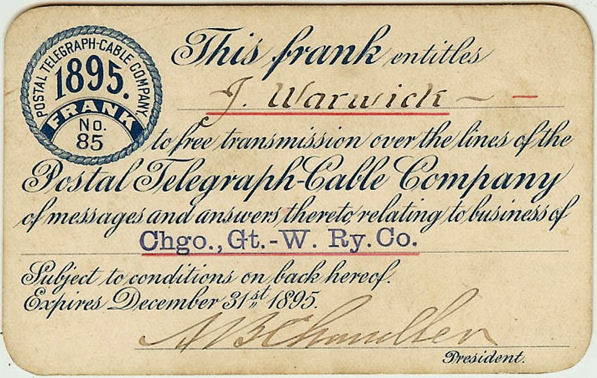 POSTAL TELEGRAPH-CABLE COMPANY
1895.
FRANK
No.
85
This frank entitles
J. Warwick
to free transmission over the lines of the
Postal Telegraph-Cable Company
of messages and answers thereto relating to business of
Chgo., Gt.-W. Ry. Co.
Subject to conditions on back hereof.
Expires December 31st 1895.
A B Chandler
President.